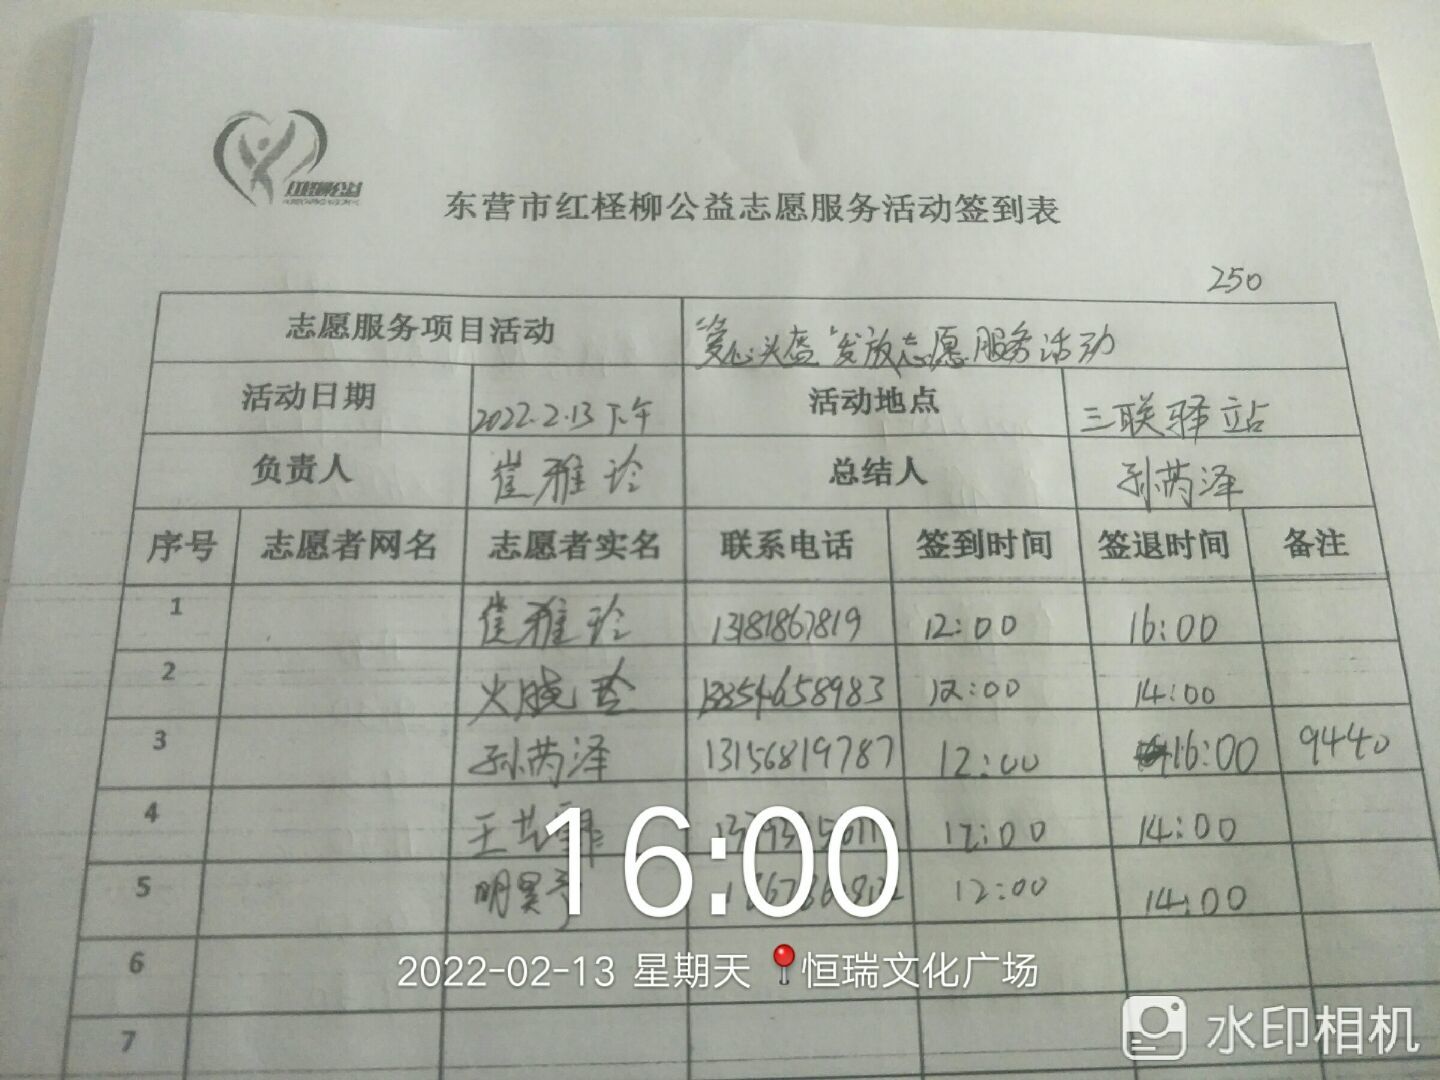 红柽柳公益
东营市红柽柳公益志愿服务活动签到表
250
志愿服务项目活动 "爱心头盔"发放志愿服务活动
活动日期 2022.2.13下午 活动地点 三联驿站
负责人 崔雅玲 总结人 孙芮泽
序号 志愿者网名 志愿者实名 联系电话 签到时间 签退时间 备注
1 崔雅玲 13181867819 12:00 16:00
2 火晓玲 13354658983 12:00 14:00
3 孙芮泽 13156819787 12:00 16:00 9440
4 12:00 14:00
5 12:00 14:00
6
7
16:00
2022-02-13 星期天 恒瑞文化广场
水印相机